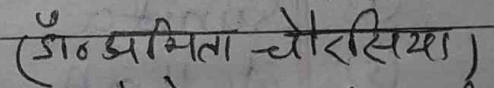 (डॉ० अमिता चौरसिया)